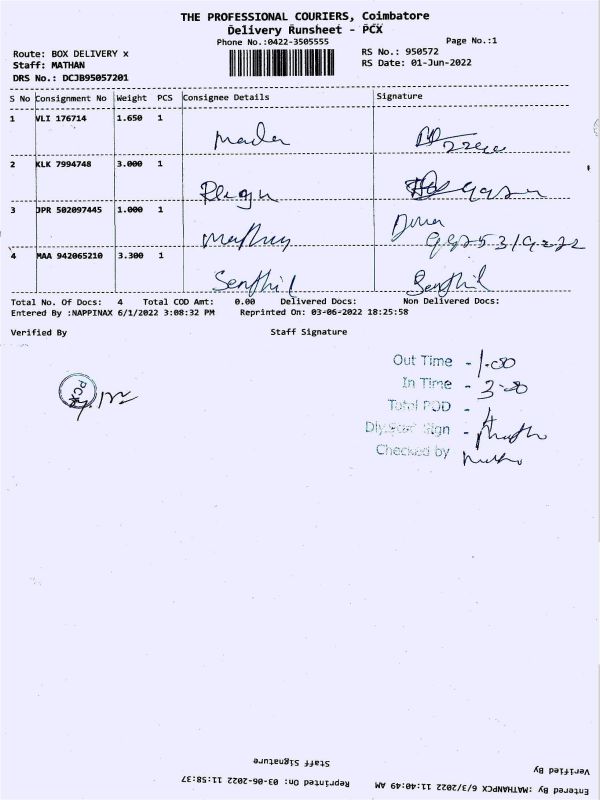 THE PROFESSIONAL COURIERS, Coimbatore
Delivery Runsheet - PCX
Phone No.:0422-3505555
Page No.:1
Route: BOX DELIVERY x
RS No.: 950572
Staff: MATHAN
RS Date: 01-Jun-2022
DRS No.: DCJB95057201
S No Consignment No Weight PCS Consignee Details Signature
1 VLI 176714 1.650 1
2 KLK 7994748 3.000 1
3 JPR 502097445 1.000 1
4 MAA 942065210 3.300 1
Senthil Senthil
Total No. Of Docs: 4 Total COD Amt: 0.00 Delivered Docs: Non Delivered Docs:
Entered By :NAPPINAX 6/1/2022 3:08:32 PM Reprinted On: 03-06-2022 18:25:58
Verified By Staff Signature
Out Time - 1.00
In Time - 3.00
Total POD -
Sign -
Checked by
PCX
Staff Signature
Verified By
Entered By :MATHANPCX 6/3/2022 11:40:49 AM Reprinted On: 03-06-2022 11:58:37